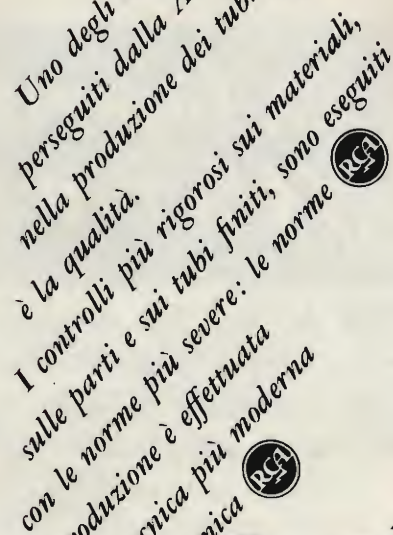 Uno degli
perseguiti dalla
nella produzione dei
è la qualità.
I controlli più rigorosi sui materiali,
sulle parti e sui tubi finiti, sono eseguiti
con le norme più severe: le norme RCA
è effettuata
più moderna
RCA